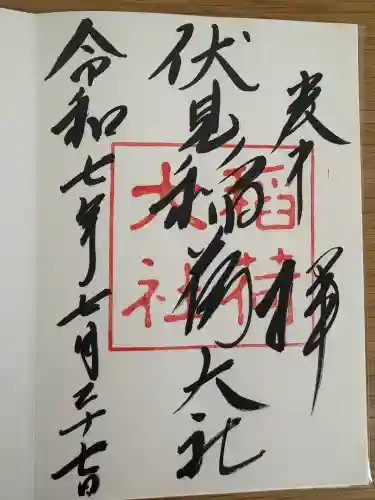 奉拝
伏見稲荷大社
令和七年七月二十七日
稲荷
大社